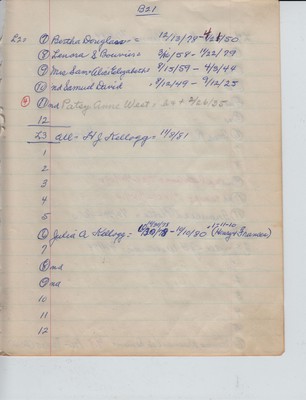 B21
L2= (7) Bertha Douglass = 12/13/78 - 4/21/50
(8) Lenora E. Bouvier= 3/10/58 - 4/22/79
(9) Mrs Sam Alai Elizabeth= 8/15/59 - 4/3/44
(10) nd Samuel David 9/12/49 - 9/12/25
(11) nd Patsy Anne West = 24 + 2/26/35
12
L3 all = H J Kellogg = 11/9/81
1
2
3
4
5
(6) Julia A Kellogg = 6/30/78 - 11/10/80 (Henry + Frances)
7
(8) nd
(9) nd
10
11
12